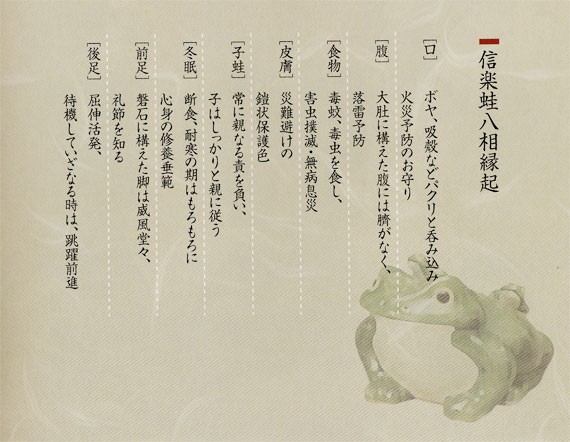 信楽蛙八相縁起
［口］ ボヤ、吸殻などパクリと呑み込み
火災予防のお守り
［腹］ 大肚に構えた腹には臍がなく、
落雷予防
［食物］ 毒蚊、毒虫を食し、
害虫撲滅・無病息災
［皮膚］ 災難避けの
鎧状保護色
［子蛙］ 常に親なる責を負い、
子はしっかりと親に従う
［冬眠］ 断食、耐寒の期はもろもろに
心身の修養垂範
［前足］ 磐石に構えた脚は威風堂々、
礼節を知る
［後足］ 屈伸活発、
待機していざなる時は、跳躍前進